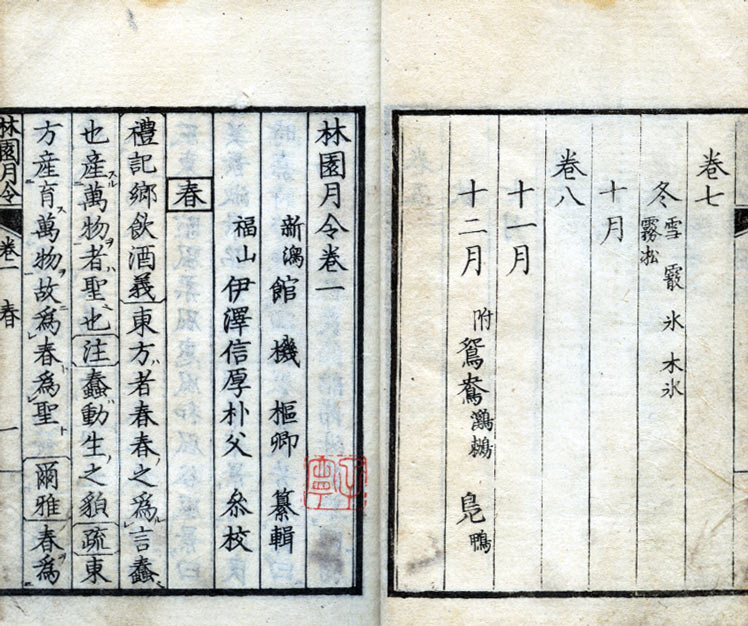 卷七
冬 雪 霰 氷 木氷
霧淞
十月
卷八
十一月
十二月 附 鴛鴦 鸂鶒 鳧 鴨
林園月令卷一
新潟 館 機 樞卿 纂輯
福山 伊澤信厚朴父 叅校
春
禮記鄉飲酒義東方者春春之爲言蠢
也產萬物者聖也注蠢動生之貌疏東
方産育萬物故爲春爲聖 爾雅春爲
林園月令 卷一 春 一